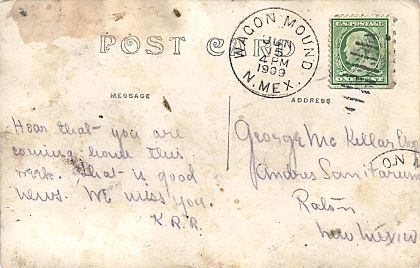 POST CARD
WAGON MOUND
JUN
15
4 PM
1909
N. MEX.
U.S. POSTAGE
ONE CENT
MESSAGE
ADDRESS
Hear that you are
coming home this
week. That is good
news. We miss you.
K.R.R.
George McKellar
Andres Sanitarium
Raton
New Mexico